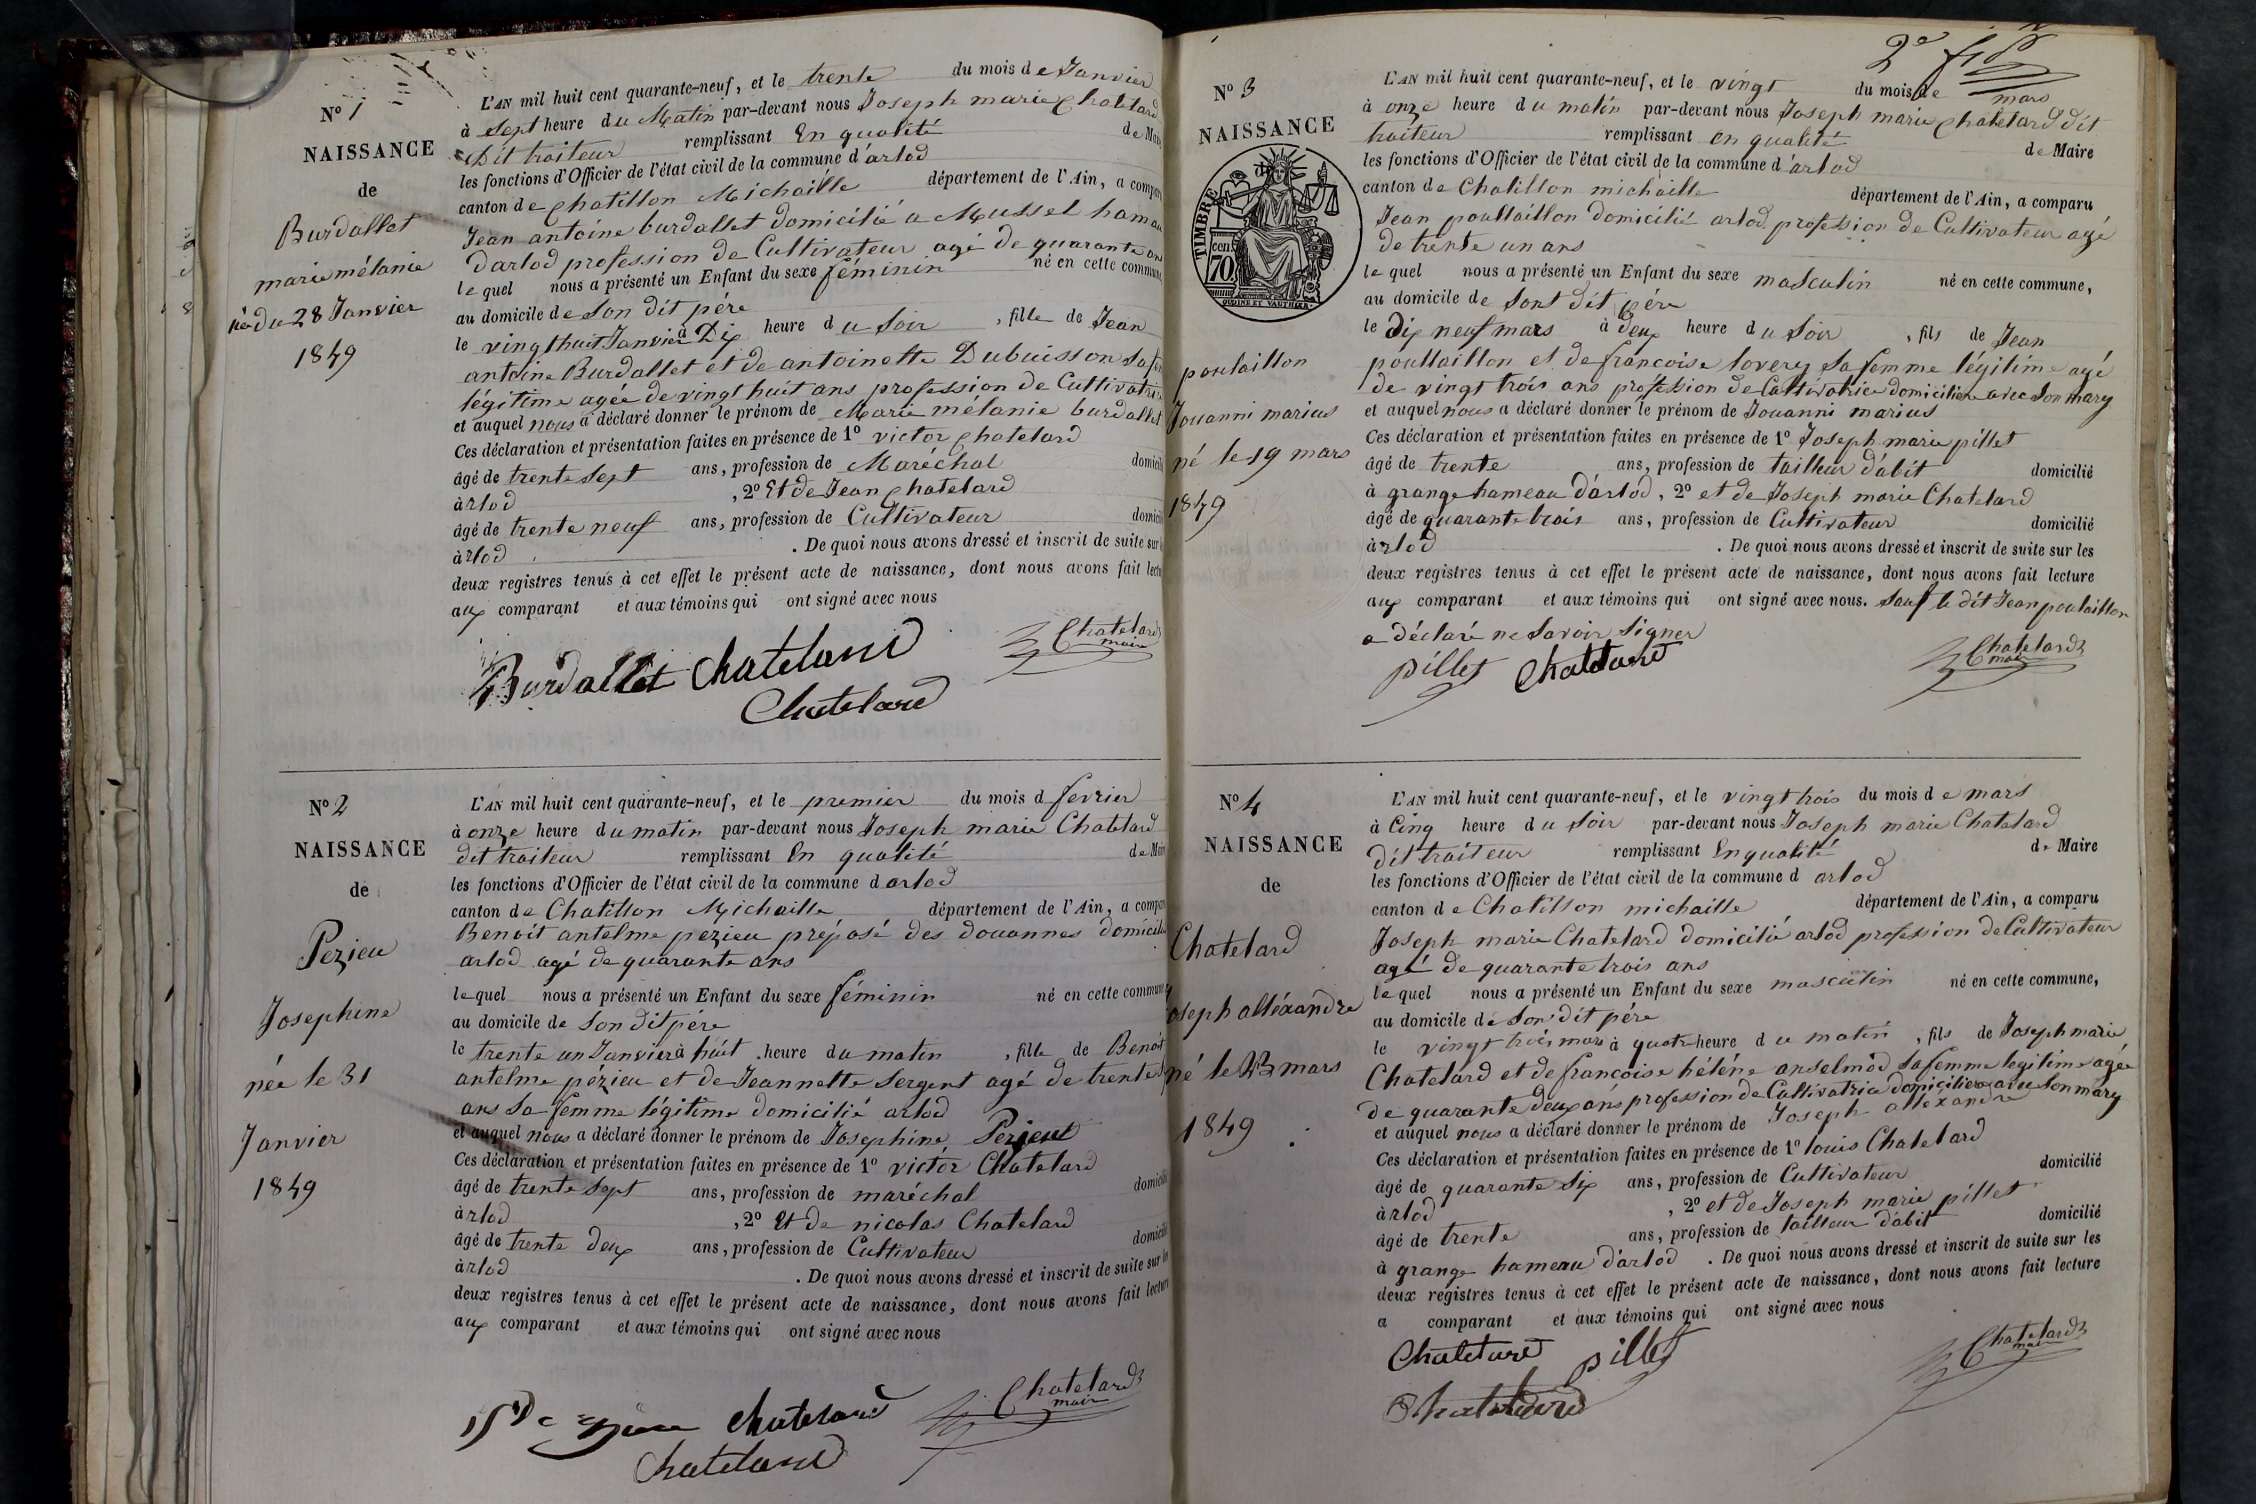 N° 1
NAISSANCE
de
Burdallet
marie mélanie
née du 28 Janvier
1849
L'AN mil huit cent quarante-neuf, et le trente du mois de Janvier
à Sept heure du Matin par-devant nous Joseph marie Chatelard
dit traiteur remplissant En qualité de Maire
les fonctions d'Officier de l'état civil de la commune d'arlod
canton de Chatillon Michaille département de l'Ain, a compar
Jean antoine burdallet domicilié a Mussel hamau
darlod profession de Cultivateur agé de quarante ans
le quel nous a présenté un Enfant du sexe féminin né en cette commune
au domicile de Son dit pére
le vingthuit Janvier à Dix heure du Soir , fille de Jean
antoine Burdallet et de antoinette Dubuisson Sa fem
légitime agée de vingt huit ans profession de Cultivatrice
et auquel nous a déclaré donner le prénom de Marie mélanie burdallet
Ces déclaration et présentation faites en présence de 1° victor Chatelard
âgé de trente Sept ans, profession de Maréchal domicilié
à rlod , 2° Et de Jean Chatelard
âgé de trente neuf ans, profession de Cultivateur domicilié
à rlod . De quoi nous avons dressé et inscrit de suite sur
deux registres tenus à cet effet le présent acte de naissance, dont nous avons fait lectu
aux comparant et aux témoins qui ont signé avec nous
Burdallet Chatelard
Chatelard
Chatelard
maire
N° 2
NAISSANCE
de
Pezieu
Josephine
née le 31
Janvier
1849
L'AN mil huit cent quarante-neuf, et le premier du mois d fevrier
à onze heure du matin par-devant nous Joseph marie Chatelard
dit traiteur remplissant En qualité de Maire
les fonctions d'Officier de l'état civil de la commune d arlod
canton de Chatillon Michaille département de l'Ain, a compar
Benoit antelme pezieu préposé des douannes domicilié
arlod agé de quarante ans
le quel nous a présenté un Enfant du sexe féminin né en cette commune
au domicile de Son dit pére
le trente un Janvier à huit heure du matin , fille de Benoit
antelme pézieu et de Jeannette Sergent agé de trente
ans Sa femme légitime domicilié arlod
et auquel nous a déclaré donner le prénom de Josephine Pezieux
Ces déclaration et présentation faites en présence de 1° victor Chatelard
âgé de trente Sept ans, profession de maréchal domicilié
à rlod , 2° Et de nicolas Chatelard
âgé de trente deux ans, profession de Cultivateur domicilié
à rlod . De quoi nous avons dressé et inscrit de suite sur les
deux registres tenus à cet effet le présent acte de naissance, dont nous avons fait lecture
aux comparant et aux témoins qui ont signé avec nous
Chatelard
Chatelard
Chatelard
maire
2e
N° 3
NAISSANCE
de
TIMBRE
70 cen
OUDINÉ ET VAUTHIER
poulaillon
Jouanni marius
né le 19 mars
1849
L'AN mil huit cent quarante-neuf, et le vingt du mois de mars
à onze heure du matin par-devant nous Joseph marie Chatelard dit
traiteur remplissant en qualité de Maire
les fonctions d'Officier de l'état civil de la commune d'arlod
canton de Chatillon michaille département de l'Ain, a comparu
Jean poullaillon domicilié arlod profession de Cultivateur agé
de trente un ans
le quel nous a présenté un Enfant du sexe masculin né en cette commune,
au domicile de Sont dit pére
le Dix neuf mars à deux heure du Soir , fils de Jean
poullaillon et de francoise lovery Sa femme légitime agé
de vingt trois ans profession de Cultivatrice domiciliere avec Son mary
et auquel nous a déclaré donner le prénom de Jouanni marius
Ces déclaration et présentation faites en présence de 1° Joseph marie pillet
âgé de trente ans, profession de tailleur d'abit domicilié
à grange hameau d'arlod, 2° et de Joseph marie Chatelard
âgé de quarante trois ans, profession de Cultivateur domicilié
à rlod . De quoi nous avons dressé et inscrit de suite sur les
deux registres tenus à cet effet le présent acte de naissance, dont nous avons fait lecture
aux comparant et aux témoins qui ont signé avec nous. Sauf le dit Jean poulaillon
a déclaré ne Savoir Signer
pillet Chatelard
Chatelard
maire
N° 4
NAISSANCE
de
Chatelard
oseph alléxandre
né le 23 mars
1849
L'AN mil huit cent quarante-neuf, et le vingt trois du mois de mars
à Cinq heure du Soir par-devant nous Joseph marie Chatelard
Dit traiteur remplissant En qualité de Maire
les fonctions d'Officier de l'état civil de la commune d arlod
canton de Chatillon michaille département de l'Ain, a comparu
Joseph marie Chatelard domicilié arlod profession de Cultivateur
agé de quarante trois ans
le quel nous a présenté un Enfant du sexe masculin né en cette commune,
au domicile de Son dit pére
le vingt trois mars à quatr heure du matin , fils de Joseph marie
Chatelard et de francoise héléne anselmod Sa femme legitime agée
de quarante deux ans profession de Cultivatrice domiciliere avec Son mary
et auquel nous a déclaré donner le prénom de Joseph alléxandre
Ces déclaration et présentation faites en présence de 1° louis Chatelard
âgé de quarante Six ans, profession de Cultivateur domicilié
à rlod , 2° et de Joseph marie pillet
âgé de trente ans, profession de tailleur d'abit domicilié
à grange hameau d'arlod . De quoi nous avons dressé et inscrit de suite sur les
deux registres tenus à cet effet le présent acte de naissance, dont nous avons fait lecture
a comparant et aux témoins qui ont signé avec nous
Chatelard pillet
Chatelard
Chatelard
maire